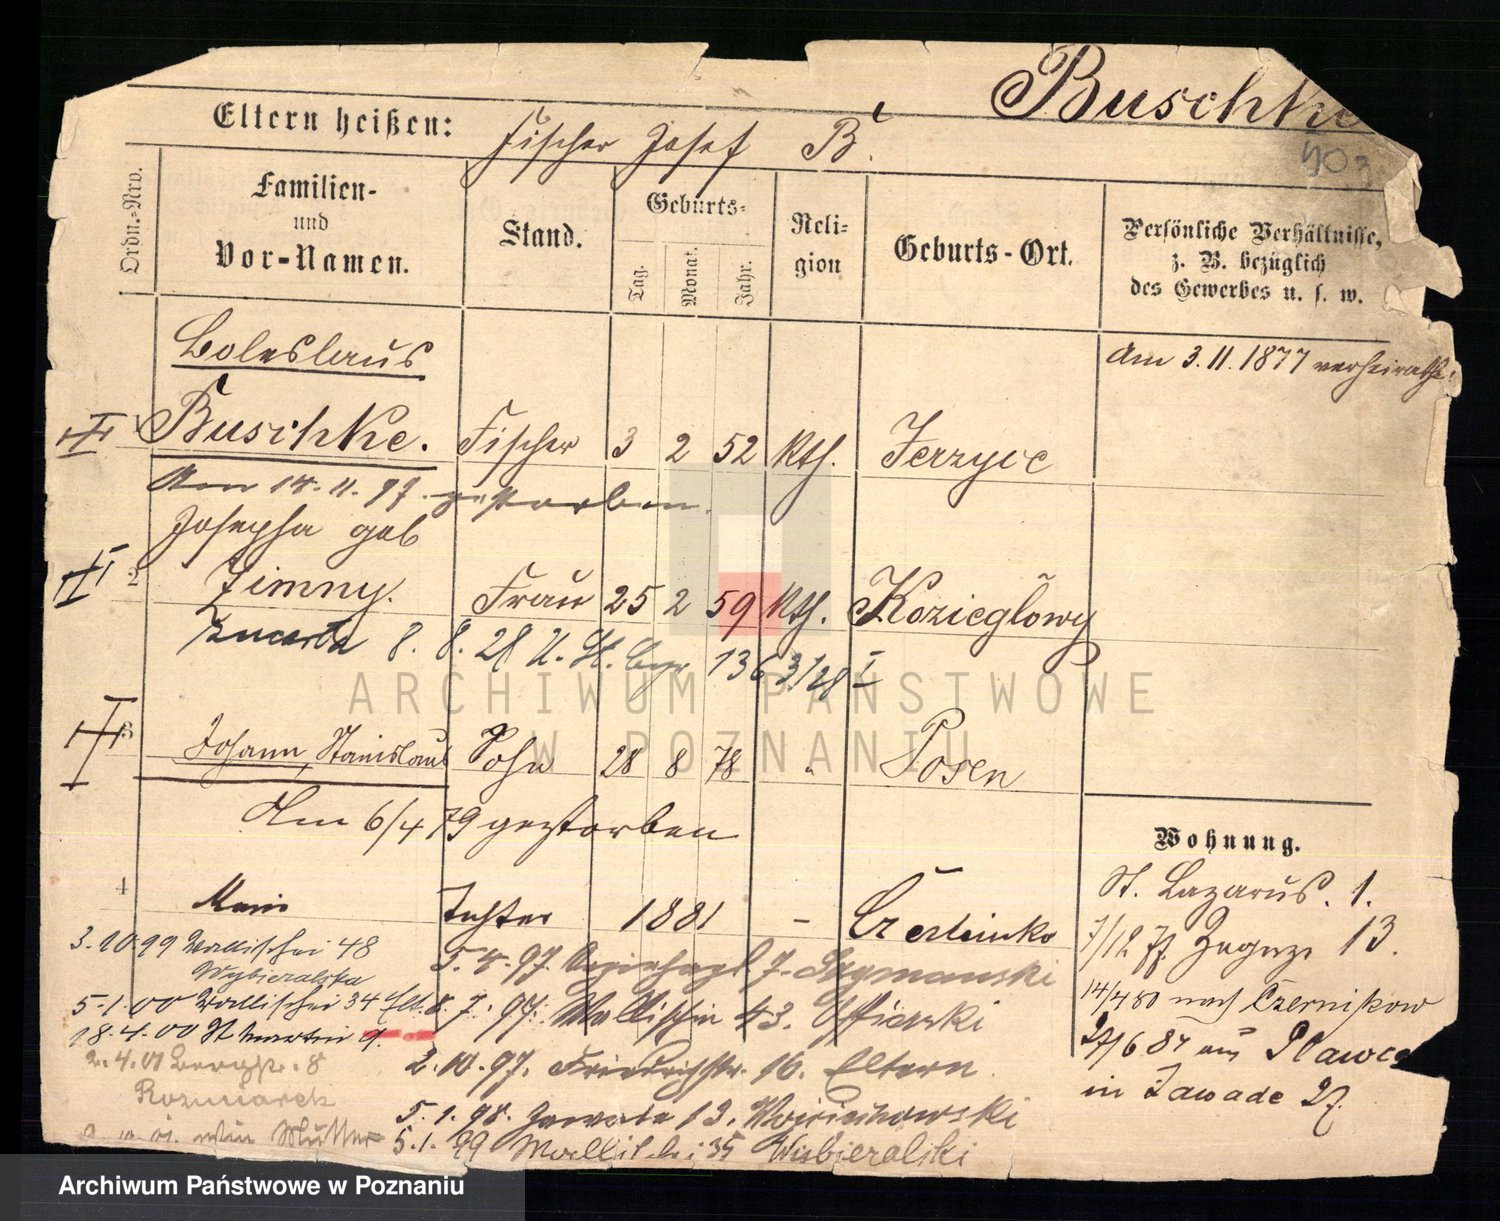 Buschke
Eltern heißen: Fischer Josef B.
Ordn.-Nro.
Familien-
und
Vor-Namen.
Stand.
Geburts-
Tag. Monat. Jahr.
Reli-
gion
Geburts-Ort.
Persönliche Verhältnisse,
z. B. bezüglich
des Gewerbes u. s. w.
Boleslaus
Am 3.11.1877 verheirathet
Buschke. Fischer 3 2 52 Kth. Jerzyce
Am 14.11.97. gestorben.
Josepha geb
2 Zimny. Frau 25 2 59 Kth. Kozieglowy
zmarła 8. 8. 28 U. St. 1363/28 I
3 Johann, Stanislaus Sohn 28 8 78 " Posen
Am 6/4 79 gestorben
4 Tochter 1881 –
Wohnung.
St. Lazarus. 1.
7/12 77 13.
14/4 80 nach Czernikow
27/6 87 aus
in Zawade 27.
3.10.99 Wallischei 48
Wybieralska
5.1.00 Wallischei 34
18.4.00 St Martin 9.
2.4.01 8
Mutter
5.4.97. 7. Szymanski
8.7.97. Wallischei 43.
2.10.97. Friedrichstr. 16. Eltern
5.1.98. Zawade 13.
5.1.99 Wallischei 35 Wybieralski
ARCHIWUM PAŃSTWOWE
W POZNANIU
Archiwum Państwowe w Poznaniu